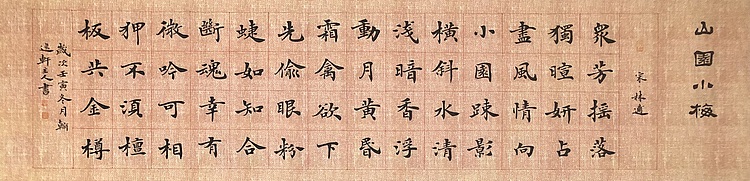 山園小梅
宋林逋
衆芳搖落
獨暄妍占
盡風情向
小園疎影
橫斜水清
淺暗香浮
動月黃昏
霜禽欲下
先偷眼粉
蜨如知合
斷魂幸有
微吟可相
狎不須檀
板共金樽
歲次壬寅冬月翰
逸軒主人書